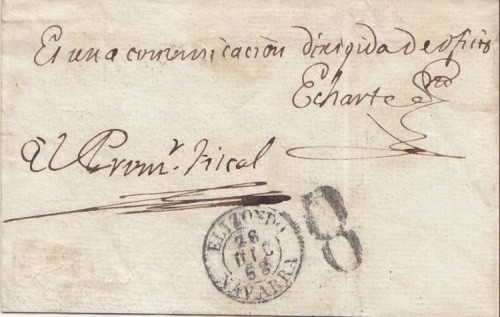 Es una comunicación dirigida de oficio
Echarte
El Promr. Fiscal
ELIZONDO
26
DIC
58
NAVARRA
8